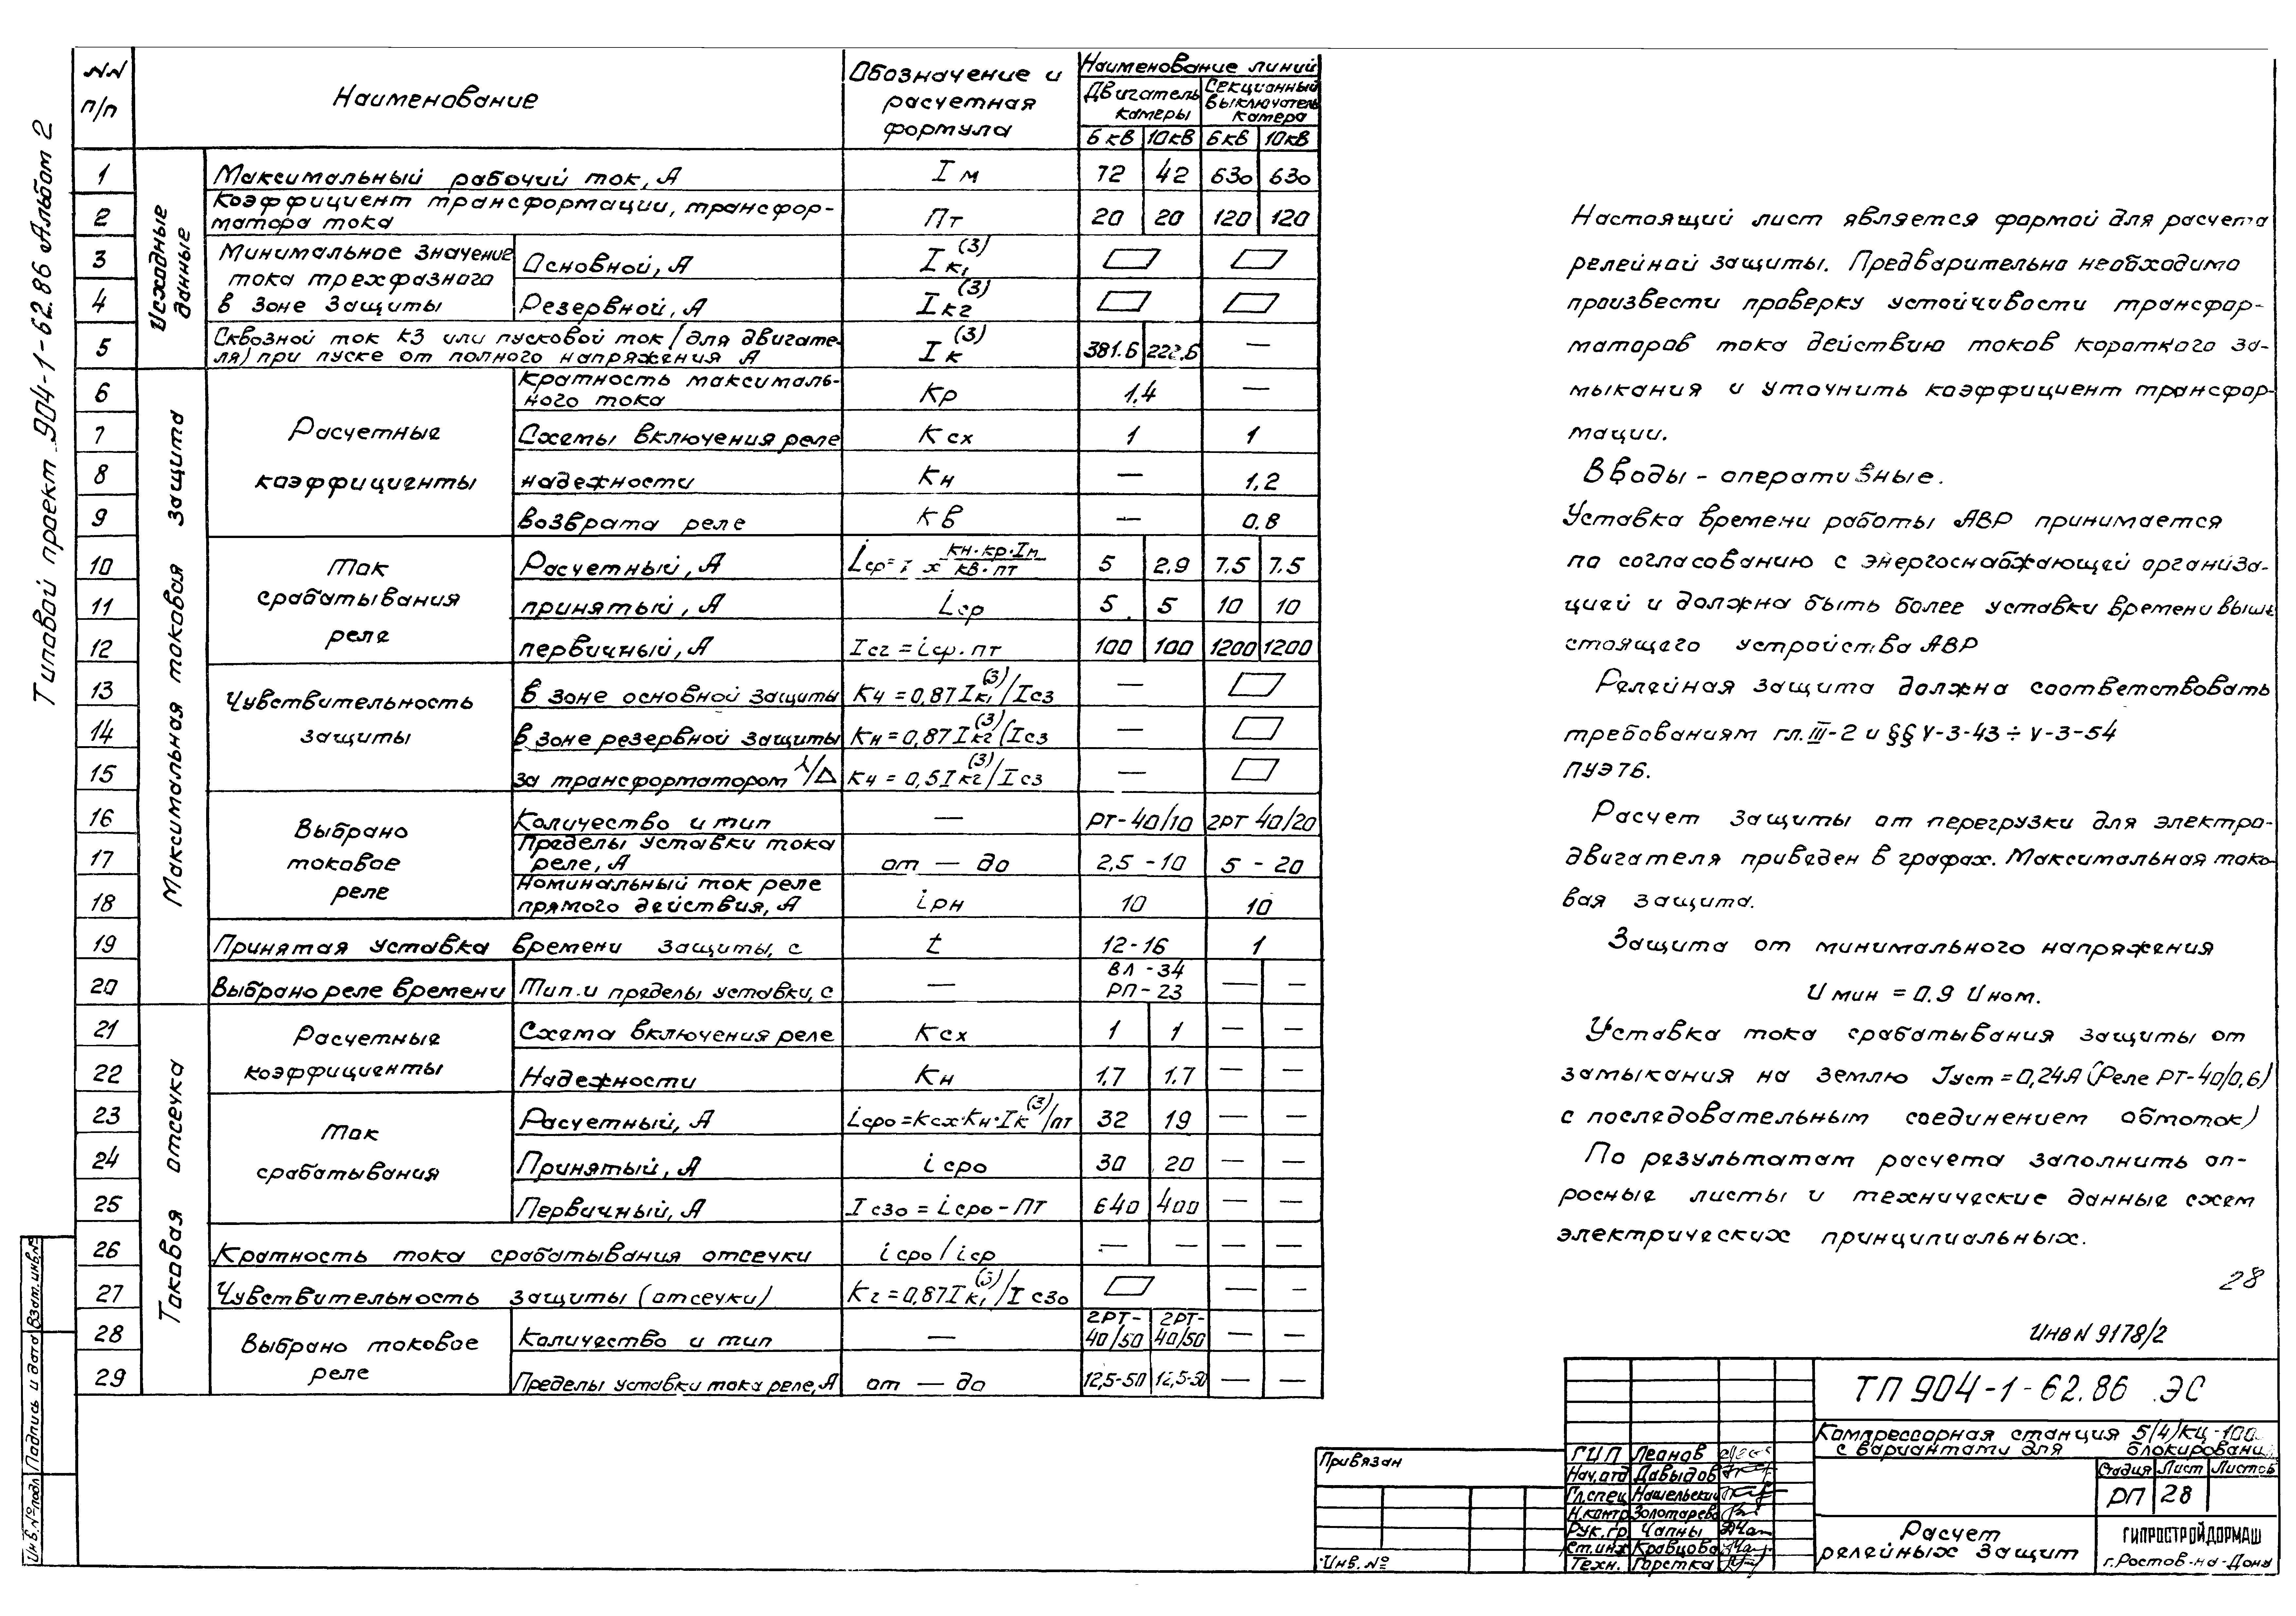 Типовой проект 904-1-62.86 Альбом 2
NN п/п
Наименование
Обозначение и расчетная формула
Наименование линий
Двигатель камеры
Секционный выключатель камера
6 кв 10кв 6 кв 10кв
Исходные данные
1 Максимальный рабочий ток, А Iм 72 42 630 630
2 Коэффициент трансформации, трансфор-
матора тока Пт 20 20 120 120
Минимальное значение
тока трехфазного
в зоне защиты
3 Основной, А Iк₁⁽³⁾
4 Резервной, А Iк2⁽³⁾
5 Сквозной ток КЗ или пусковой ток (для двигате-
ля) при пуске от полного напряжения А Iк⁽³⁾ 381.6 222.6 —
Максимальная токовая защита
Расчетные
коэффициенты
6 Кратность максималь-
ного тока Кр 1,4 —
7 Схемы включения реле Ксх 1 1
8 надежности Кн — 1,2
9 возврата реле Кв — 0.8
Ток
срабатывания
реле
10 Расчетный, А iср= х Кн·Кр·Iм/Кв·пт 5 2.9 7.5 7.5
11 принятый, А iср 5 5 10 10
12 первичный, А Iсг = iср·пт 100 100 1200 1200
Чувствительность
защиты
13 в зоне основной защиты Кч = 0,87Iк₁⁽³⁾/Iсз —
14 в зоне резервной защиты Кн = 0,87Iк2⁽³⁾/Iсз —
15 за трансформатором λ/Δ Кч = 0,5Iк2⁽³⁾/Iсз —
Выбрано
токовое
реле
16 Количество и тип — РТ-40/10 2РТ 40/20
17 Пределы уставки тока
реле, А от — до 2,5 - 10 5 - 20
18 Номинальный ток реле
прямого действия, А iрн 10 10
19 Принятая уставка времени защиты, с t 12-16 1
20 Выбрано реле времени Тип и пределы уставки, с — ВЛ-34
РП-23 — —
Токовая отсечка
Расчетные
коэффициенты
21 Схема включения реле Ксх 1 1 — —
22 Надежности Кн 1.7 1.7 — —
Ток
срабатывания
23 Расчетный, А iсро=Ксх·Кн·Iк⁽³⁾/пт 32 19 — —
24 Принятый, А iсро 30 20 — —
25 Первичный, А Iсзо = iсро-Пт 640 400 — —
26 Кратность тока срабатывания отсечки iсро/iср — — — —
27 Чувствительность защиты (отсечки) Кг=0,87Iк₁⁽³⁾/Iсзо — —
Выбрано токовое
реле
28 Количество и тип — 2РТ-40/50 2РТ-40/50 — —
29 Пределы уставки тока реле, А от — до 12,5-50 12,5-50 — —
Настоящий лист является формой для расчета
релейной защиты. Предварительно необходимо
произвести проверку устойчивости трансфор-
маторов тока действию токов короткого за-
мыкания и уточнить коэффициент трансфор-
мации.
Вводы - оперативные.
Уставка времени работы АВР принимается
по согласованию с энергоснабжающей организа-
цией и должна быть более уставки времени выше
стоящего устройства АВР
Релейная защита должна соответствовать
требованиям гл. III-2 и §§ V-3-43 ÷ V-3-54
ПУЭ76.
Расчет защиты от перегрузки для электро-
двигателя приведен в графах. Максимальная токо-
вая защита.
Защита от минимального напряжения
U мин = 0.9 U ном.
Уставка тока срабатывания защиты от
замыкания на землю Iуст = 0,24А (Реле РТ-40/0,6)
с последовательным соединением обмоток)
По результатам расчета заполнить оп-
росные листы и технические данные схем
электрических принципиальных.
28
Инв N 9178/2
ТП 904-1-62.86 .ЭС
Компрессорная станция 5(4)КЦ-100
с вариантами для блокировани
Стадия Лист Листов
РП 28
Расчет
релейных защит
ГИПРОСТРОЙДОРМАШ
г.Ростов-на-Дону
ГИП Леанов
Нач.отд Давыдов
Гл.спец Нашельский
Н.контр Золотарева
Рук.гр Чапны
Ст.инж Кравцова
Техн. Горстка
Привязан
Инв. №
Взам.инв.№
Подпись и дата
Инв.№ подл